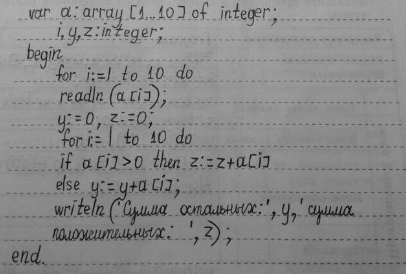 var a: array [1...10] of integer;
i, y, z: integer;
begin
for i:=1 to 10 do
readln (a[i]);
y:=0, z:=0;
for i:= 1 to 10 do
if a[i]>0 then z:=z+a[i]
else y:=y+a[i];
writeln ('Сумма остальных:', y,' сумма
положительных: ', z);
end.